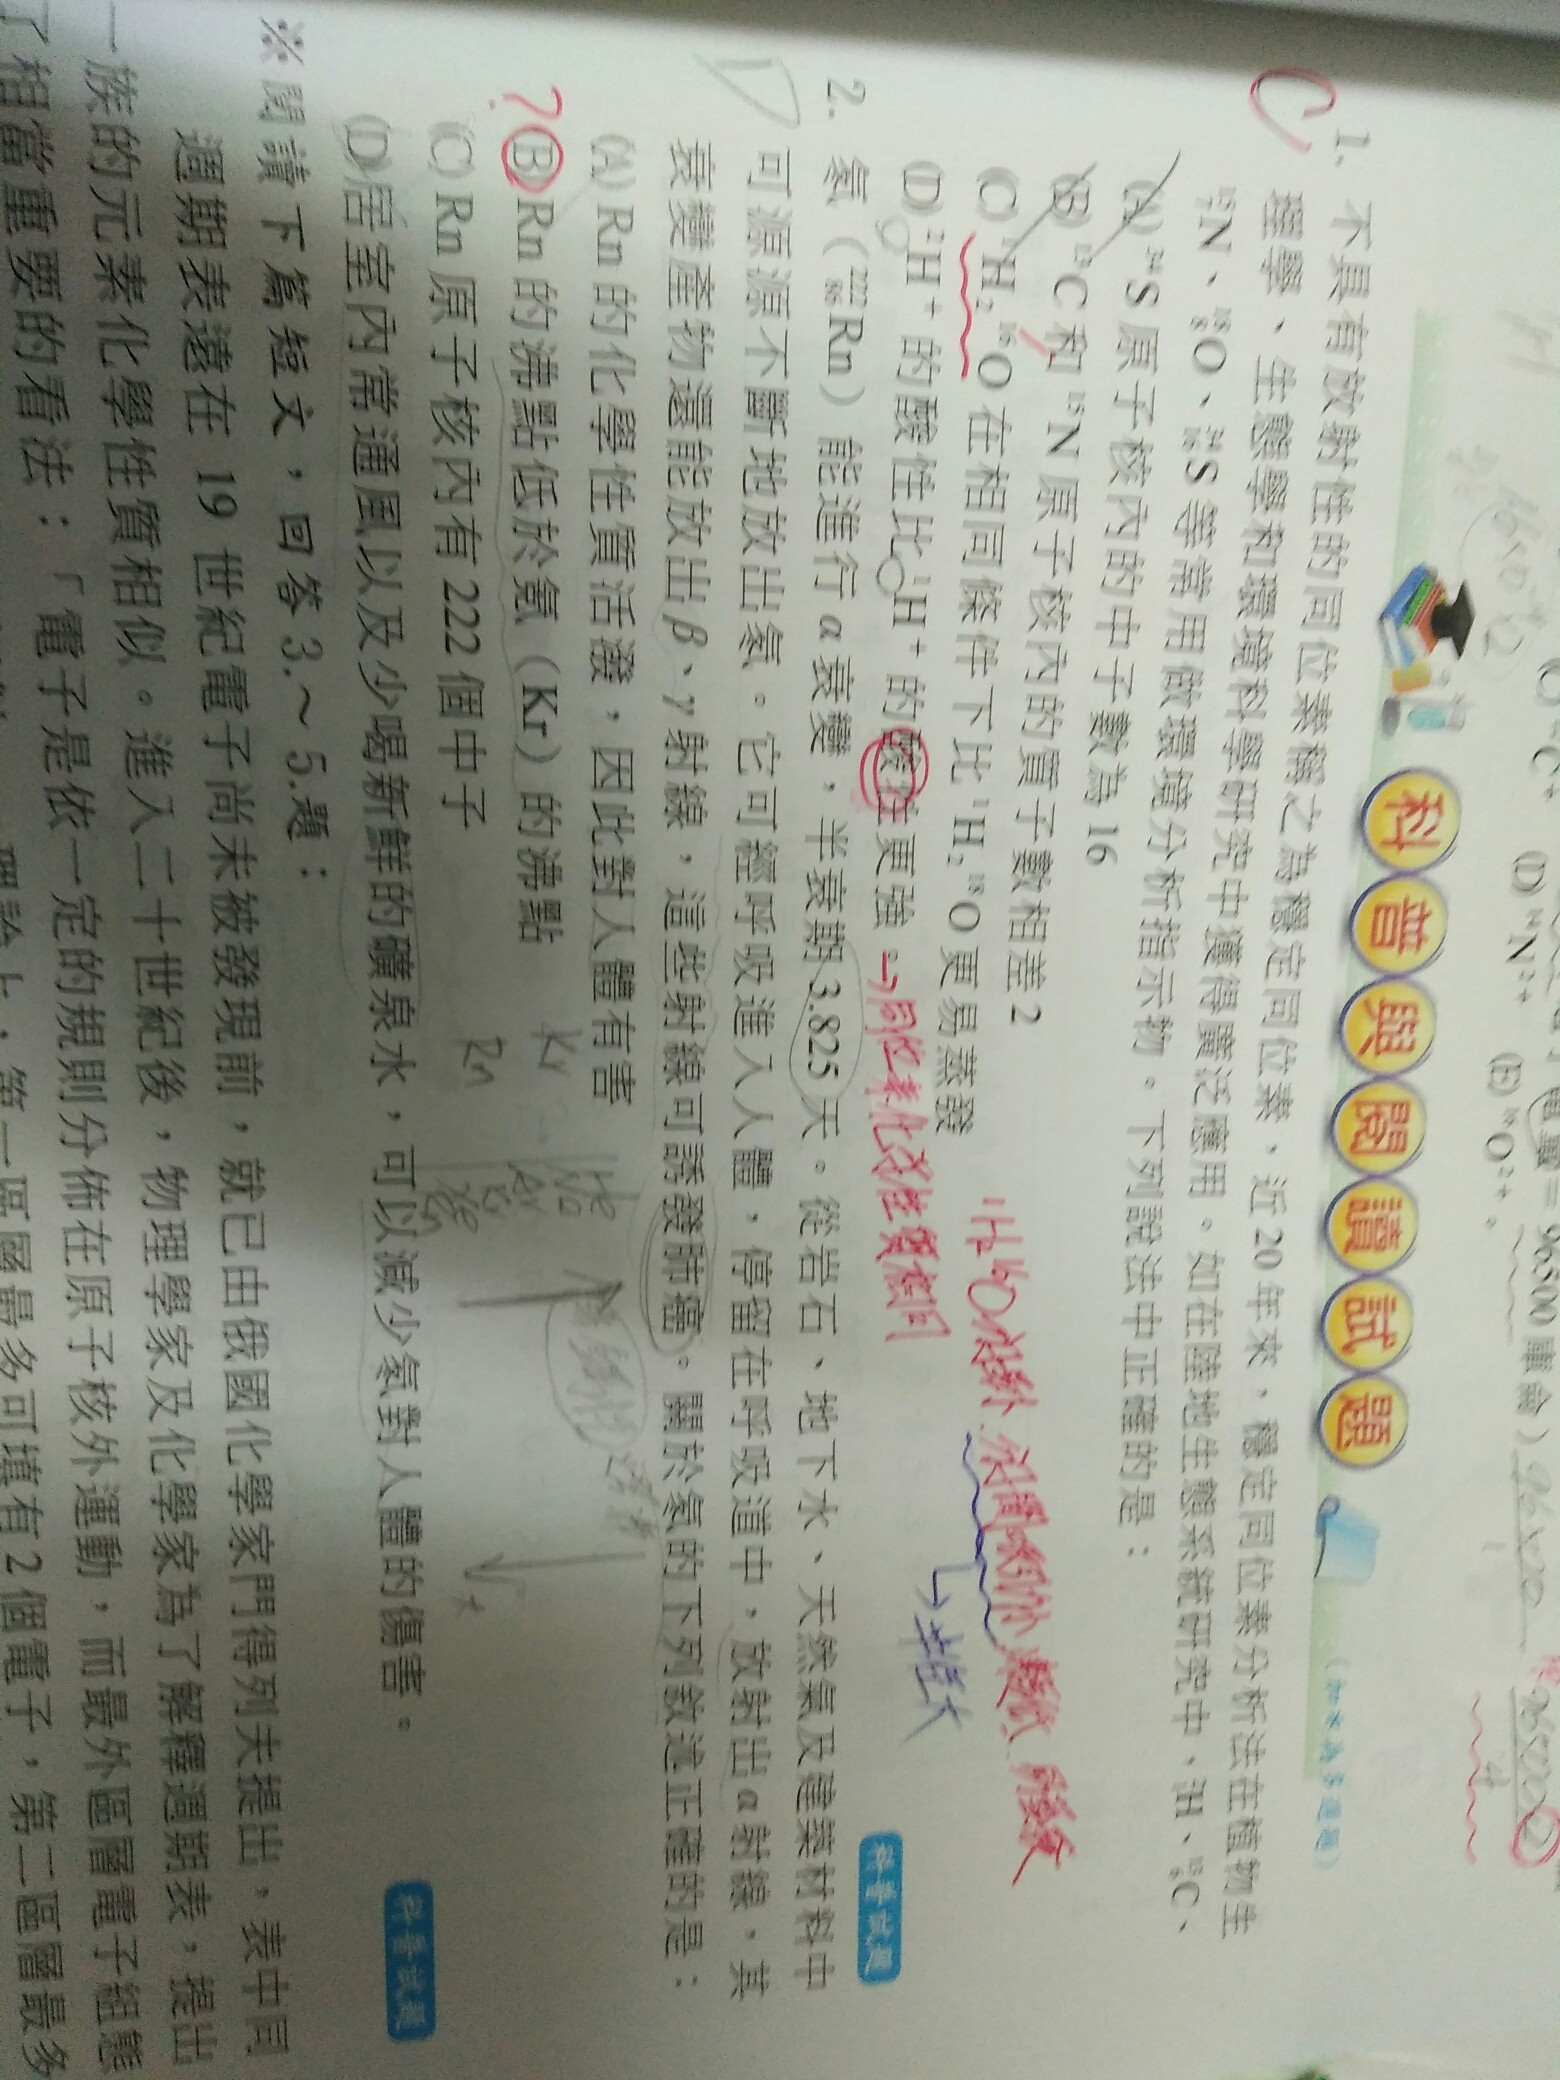 (C) ⁻C⁺ (D) ¹⁴N²⁺ (E) ¹⁶O²⁺。
電量＝96500 庫侖）
科普與閱讀試題
C
1. 不具有放射性的同位素稱之為穩定同位素，近 20 年來，穩定同位素分析法在植物生
理學、生態學和環境科學研究中獲得廣泛應用。如在陸地生態系統研究中，²₁H、¹³₆C、
¹⁵₇N、¹⁸₈O、³⁴₁₆S 等常用做環境分析指示物。下列說法中正確的是：
(A) ³⁴S 原子核內的中子數為 16
(B) ¹³C 和 ¹⁵N 原子核內的質子數相差 2
(C) ¹H₂ ¹⁶O 在相同條件下比 ¹H₂ ¹⁸O 更易蒸發
(D) ²H⁺ 的酸性比 ¹H⁺ 的酸性更強。
→同位素化學性質相同
科普試題
D
2. 氡（²²²₈₆Rn）能進行 α 衰變，半衰期 3.825 天。從岩石、地下水、天然氣及建築材料中
可源源不斷地放出氡。它可經呼吸進入人體，停留在呼吸道中，放射出 α 射線，其
衰變產物還能放出 β、γ 射線，這些射線可誘發肺癌。關於氡的下列敘述正確的是：
(A) Rn 的化學性質活潑，因此對人體有害
?
(B) Rn 的沸點低於氪（Kr）的沸點
Kr
(C) Rn 原子核內有 222 個中子
Rn
(D) 居室內常通風以及少喝新鮮的礦泉水，可以減少氡對人體的傷害。
科普試題
※閱讀下篇短文，回答 3.～ 5.題：
週期表遠在 19 世紀電子尚未被發現前，就已由俄國化學家門得列夫提出，表中同
一族的元素化學性質相似。進入二十世紀後，物理學家及化學家為了解釋週期表，提出
了相當重要的看法：「電子是依一定的規則分佈在原子核外運動，而最外區層電子組態
理論上，第一區層最多可填有 2 個電子，第二區層最多